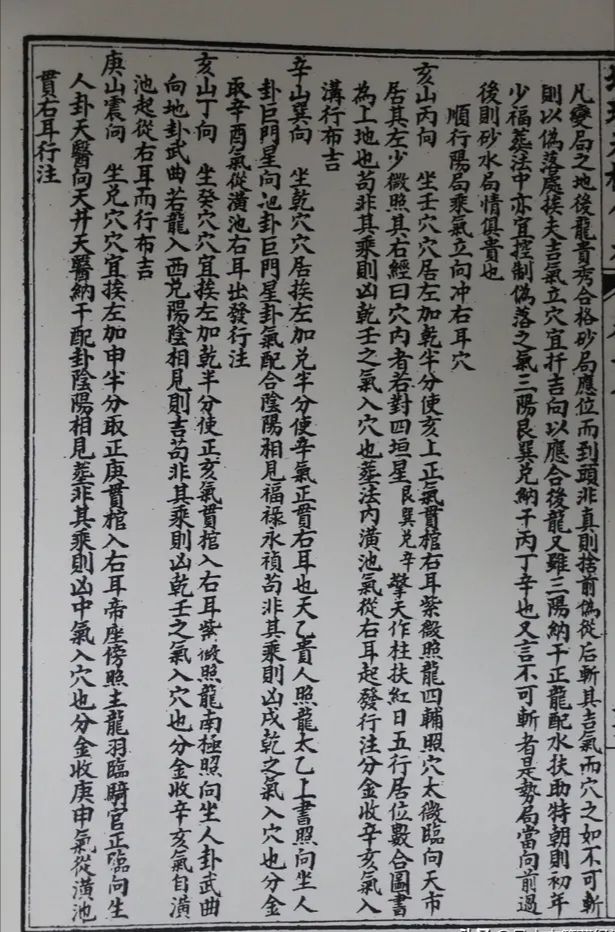 凡變局之地後龍貴秀合格砂局應位而到頭非真則捨前偽從后斬其吉氣而穴之如不可斬
則以偽落處挨夫吉氣立穴宜扦吉向以應合後龍又雖三陽納干正龍配水扶助特朝則初年
少福葬法中亦宜控制偽落之氣三陽艮巽兌納干丙丁辛也又言不可斬者是勢局當向前過
後則砂水局情俱貴也
順行陽局乘氣立向冲右耳穴
亥山丙向 坐壬穴穴居左加乾半分使亥上正氣貫棺右耳紫微照龍四輔照穴太微臨向天市
居其左少微照其右經曰穴內者若對四垣星艮巽兌辛擎天作柱扶紅日五行居位數合圖書
為上地也苟非其乘則凶乾壬之氣入穴也葬法內潢池氣從右耳起發行注分金收辛亥氣入
溝行布吉
辛山巽向 坐乾穴穴居挨左加兌半分使辛氣正貫右耳也天乙貴人照龍太乙上書照向坐人
卦巨門星向地卦巨門星卦氣配合陰陽相見福祿永禎苟非其乘則凶戌乾之氣入穴也分金
取辛酉氣從潢池右耳出發行注
亥山丁向 坐癸穴穴宜挨左加乾半分使正亥氣貫棺入右耳紫微照龍南極照向坐人卦武曲
向地卦武曲若龍入西兌陽陰相見則吉苟非其乘則凶乾壬之氣入穴也分金收辛亥氣自潢
池起從右耳而行布吉
庚山震向 坐兌穴穴宜挨左加申半分取正庚貫棺入右耳帝座傍照主龍羽臨騎官正臨向生
人卦天醫向天井天醫納干配卦陰陽相見葬非其乘則凶中氣入穴也分金收庚申氣從潢池
貫右耳行注